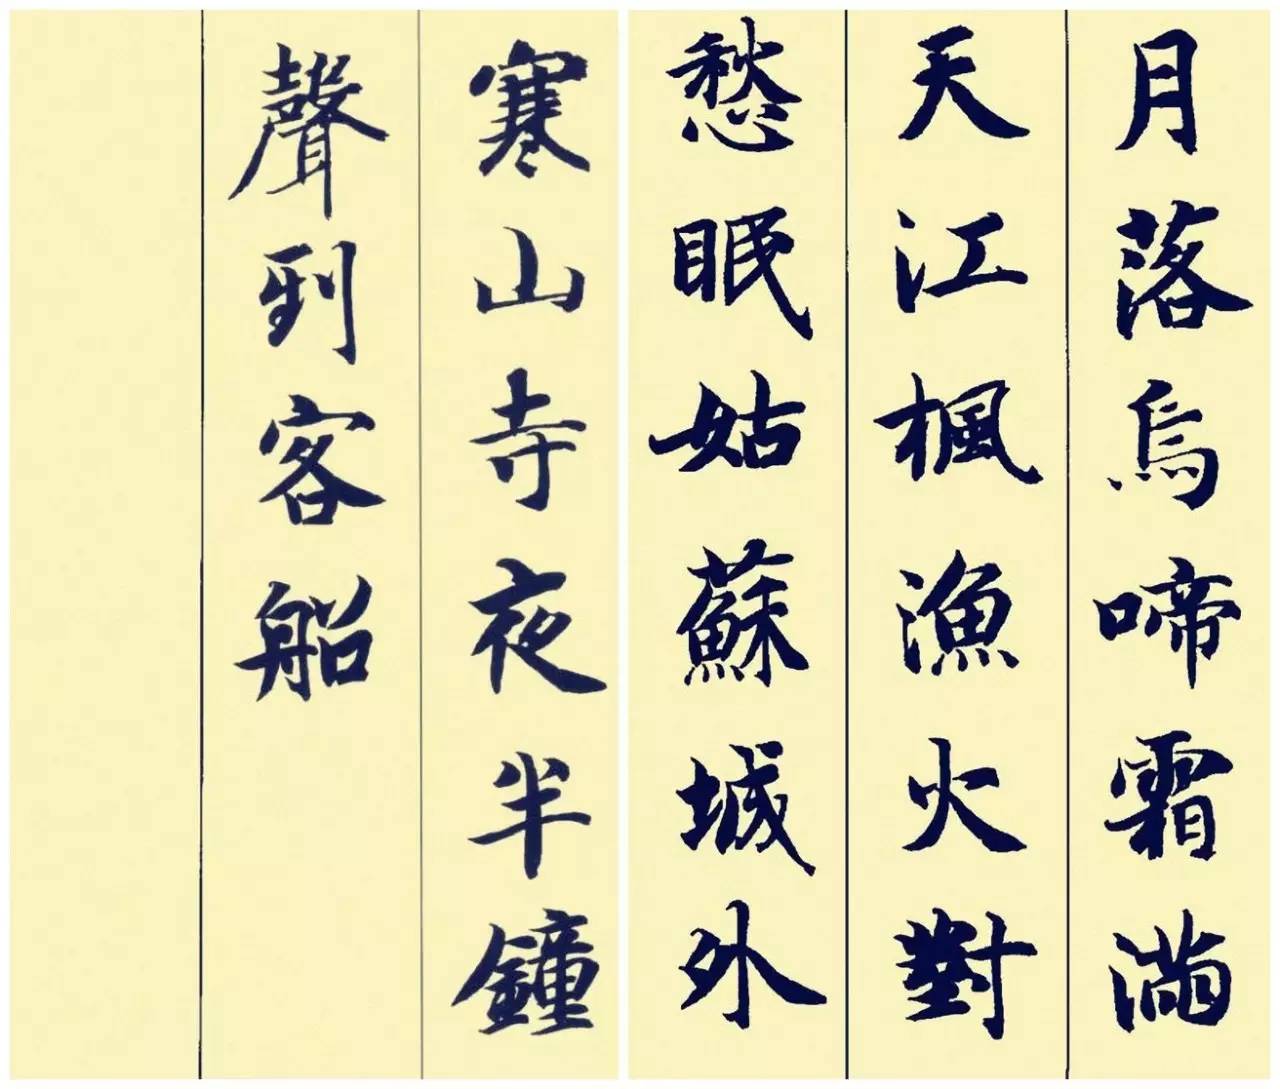 月落烏啼霜滿
天江楓漁火對
愁眠姑蘇城外
寒山寺夜半鐘
聲到客船